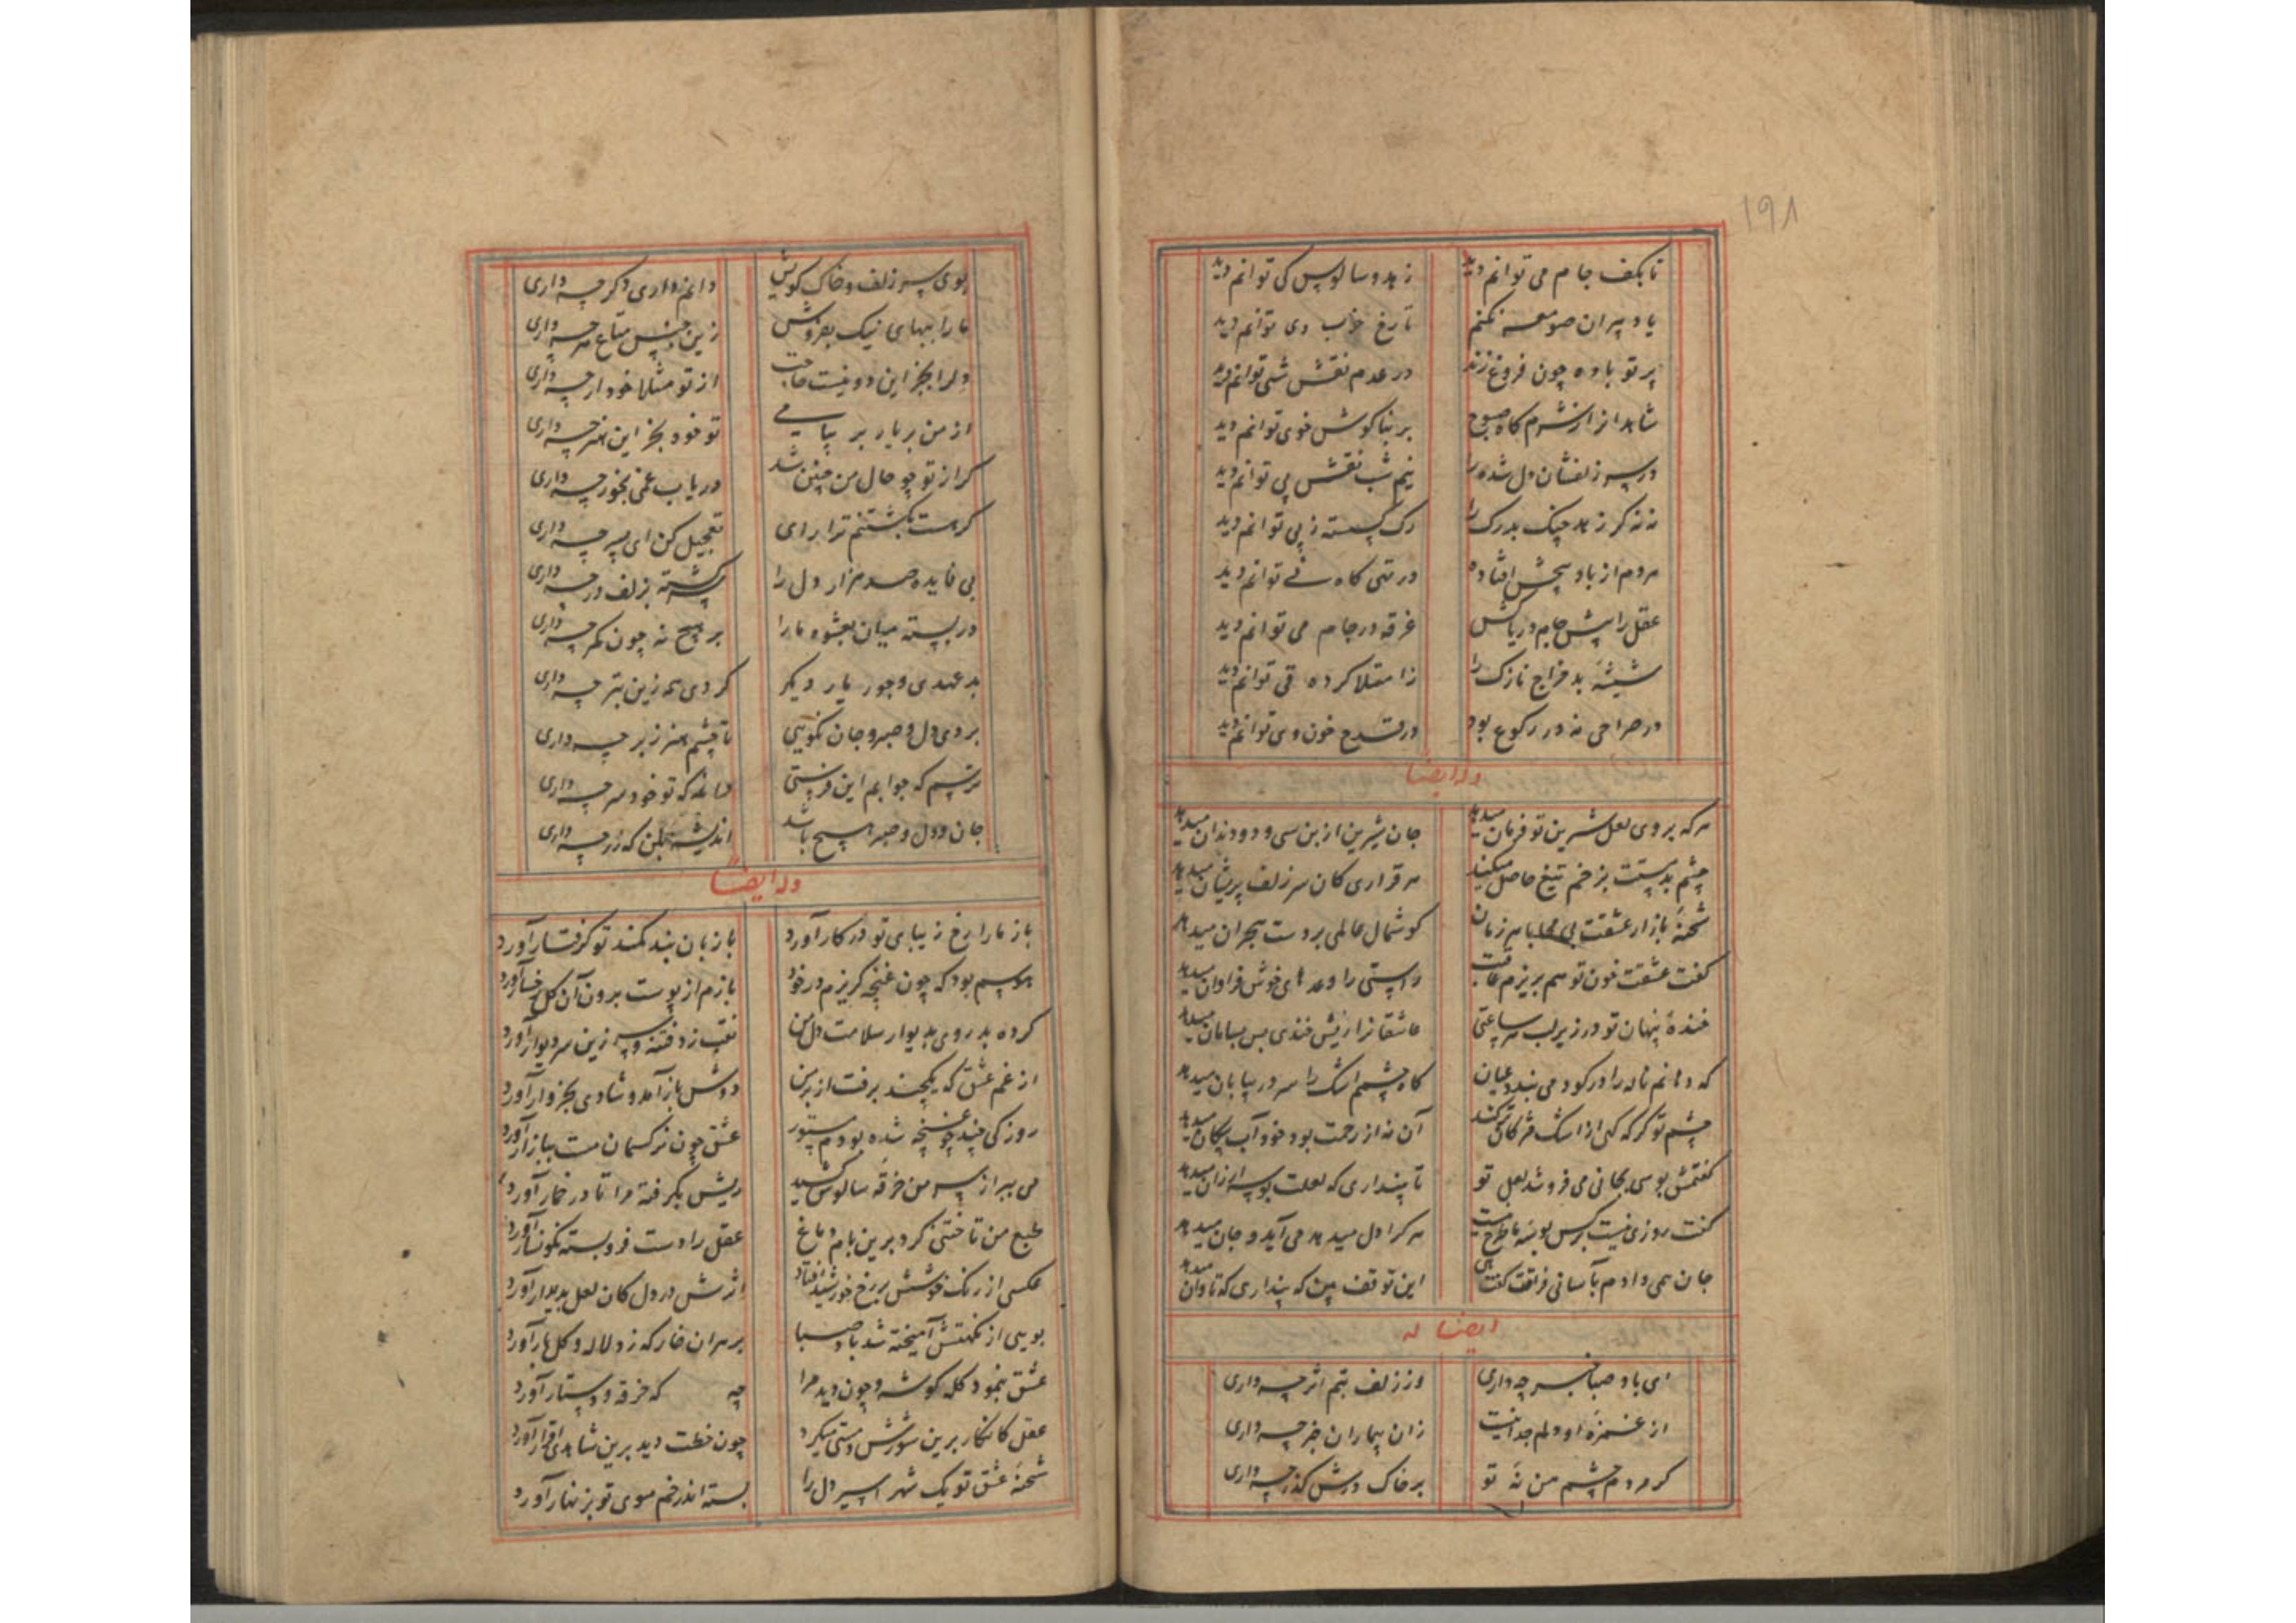 ۱۹۸
تا بکف جام می توانم دید زهد و سالوس کی توانم دید
یاد پیران صومعه نکنم تا رخ خوب وی توانم دید
پرتو باده چون فروغ زند در عدم نقش شی توانم دید
شاهد از شرم گاه صبوح بر بناگوش خوی توانم دید
در سر زلفشان دل شده را نیم شب نقش پی توانم دید
نه نه گر زهد چنگ بدرگ را رگ گسسته ز پی توانم دید
هر دم از باد افتاده در تهی گاه نی توانم دید
عقل را پیش جام دریاکش غرقه در جام می توانم دید
شیشهٔ بد مزاج نازک را ز امتلا کرده قی توانم دید
در صراحی نه در رکوع بود در قدح خون وی توانم دید
وله ایضا
هر که بر وی لعل شیرین تو فرمان میدهد جان شیرین از بن سی و دو دندان میدهد
چشم بدمستت بزخم تیغ حاصل میکند هر قراری کان سر زلف پریشان میدهد
شحنهٔ بازار عشقت بی محابا هر زمان گوشمال عالمی بر دست هجران میدهد
گفت عشقت خون تو هم بریزم عاقبت راستی را وعدهای خوش فراوان میدهد
خندهٔ پنهان تو در زیر لب هر ساعتی عاشقانرا ریش خندی بس بسامان میدهد
که دهانم ناله را در کو دمی بندد عیان گاه چشمم اشک را سر در بیابان میدهد
چشم تو گر گه گهی از اشک مژگان تر کند آن نه از رحمت بود خود آب پیکان میدهد
گفتمش بوسی بجانی می فروشد لعل تو تا پنداری که لعلت بوسه ارزان میدهد
گفت روزی نیست بر کس بوسهٔ ما طرح هر کرا دل میدهد می آید و جان میدهد
جان همی دادم بآسانی فراقت گفت هی این توقف بین که پنداری که تاوان میدهد
ایضا له
ای باد صبا خبر چه داری وز زلف بتم اثر چه داری
از غمزهٔ او دلم جدا نیست زان بیماران خبر چه داری
گر مردم چشم من نهٔ تو بر خاک درش گذر چه داری
بوی سر زلف و خاک کویش دانم داری دگر چه داری
ما را ببهای نیک بفروش زین جنس متاع هر چه داری
دلرا بجز این دو نیست حاجت از تو مثلا خود ار چه داری
از من بر یار بر پیامی تو خود بجز این هنر چه داری
گر از تو چو حال من چنین شد دریاب غمی بخور چه داری
گر هست بکشتنم ترا رای تعجیل کن ای پسر چه داری
بی فایده صد هزار دل را سرگشته بزلف در چه داری
در بسته میان بعشوه ما را بر هیچ نه چون کمر چه داری
بدعهدی و جور یار دیگر کردی همه زین بتر چه داری
بردی دل و صبر و جان نگویی تا چشم هنر ز بر چه داری
ترسم که جوابم این فرستی که تو خود سر چه داری
جان و دل و صبر هیچ باشد اندیشه بکن که زر چه داری
وله ایضا
باز ما را رخ زیبای تو در کار آورد باز بان بند کمند تو گرفتار آورد
هوسم بود که چون غنچه گریزم در خود بازم از پوست برون آن گل رخسار آورد
کرده بد روی بدیوار سلامت دل من نقب زد فتنه و سر زین سر دیوار آورد
از غم عشق که یکچند برفت از بر من دوش باز آمد و شادی بخروار آورد
روزکی چند چو غنچه شده بودم مستور عشق چون نرگسم مست ببازار آورد
می ببر از سر من خرقه سالوس کشید ریش بگرفته مرا تا در خمار آورد
طبع من تاختنی کرد برین بام دماغ عقل را دست فرو بسته نگونسار آورد
عکسی از رنگ خوشش بر رخ خورشید افتاد اثرش در دل کان لعل پدیدار آورد
بویی از نکهتش آمیخته شد باد صبا بر هر آن خار که زد لاله و گل بار آورد
عشق بنمود کله گوشه و چون دید مرا چه که خرقه و دستار آورد
عقل کانکار برین شورش و مستی میکرد چون خطت دید برین شاهدی اقرار آورد
شحنهٔ عشق تو یک شهر اسیر دل را بسته اندر خم موی تو بزنهار آورد